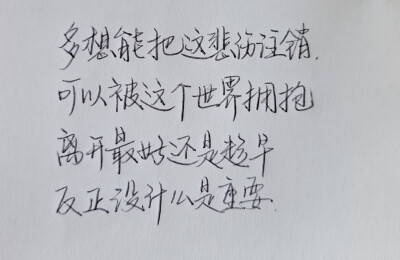 多想能把这悲伤注销.
可以被这个世界拥抱
离开最好还是趁早
反正没什么是重要.